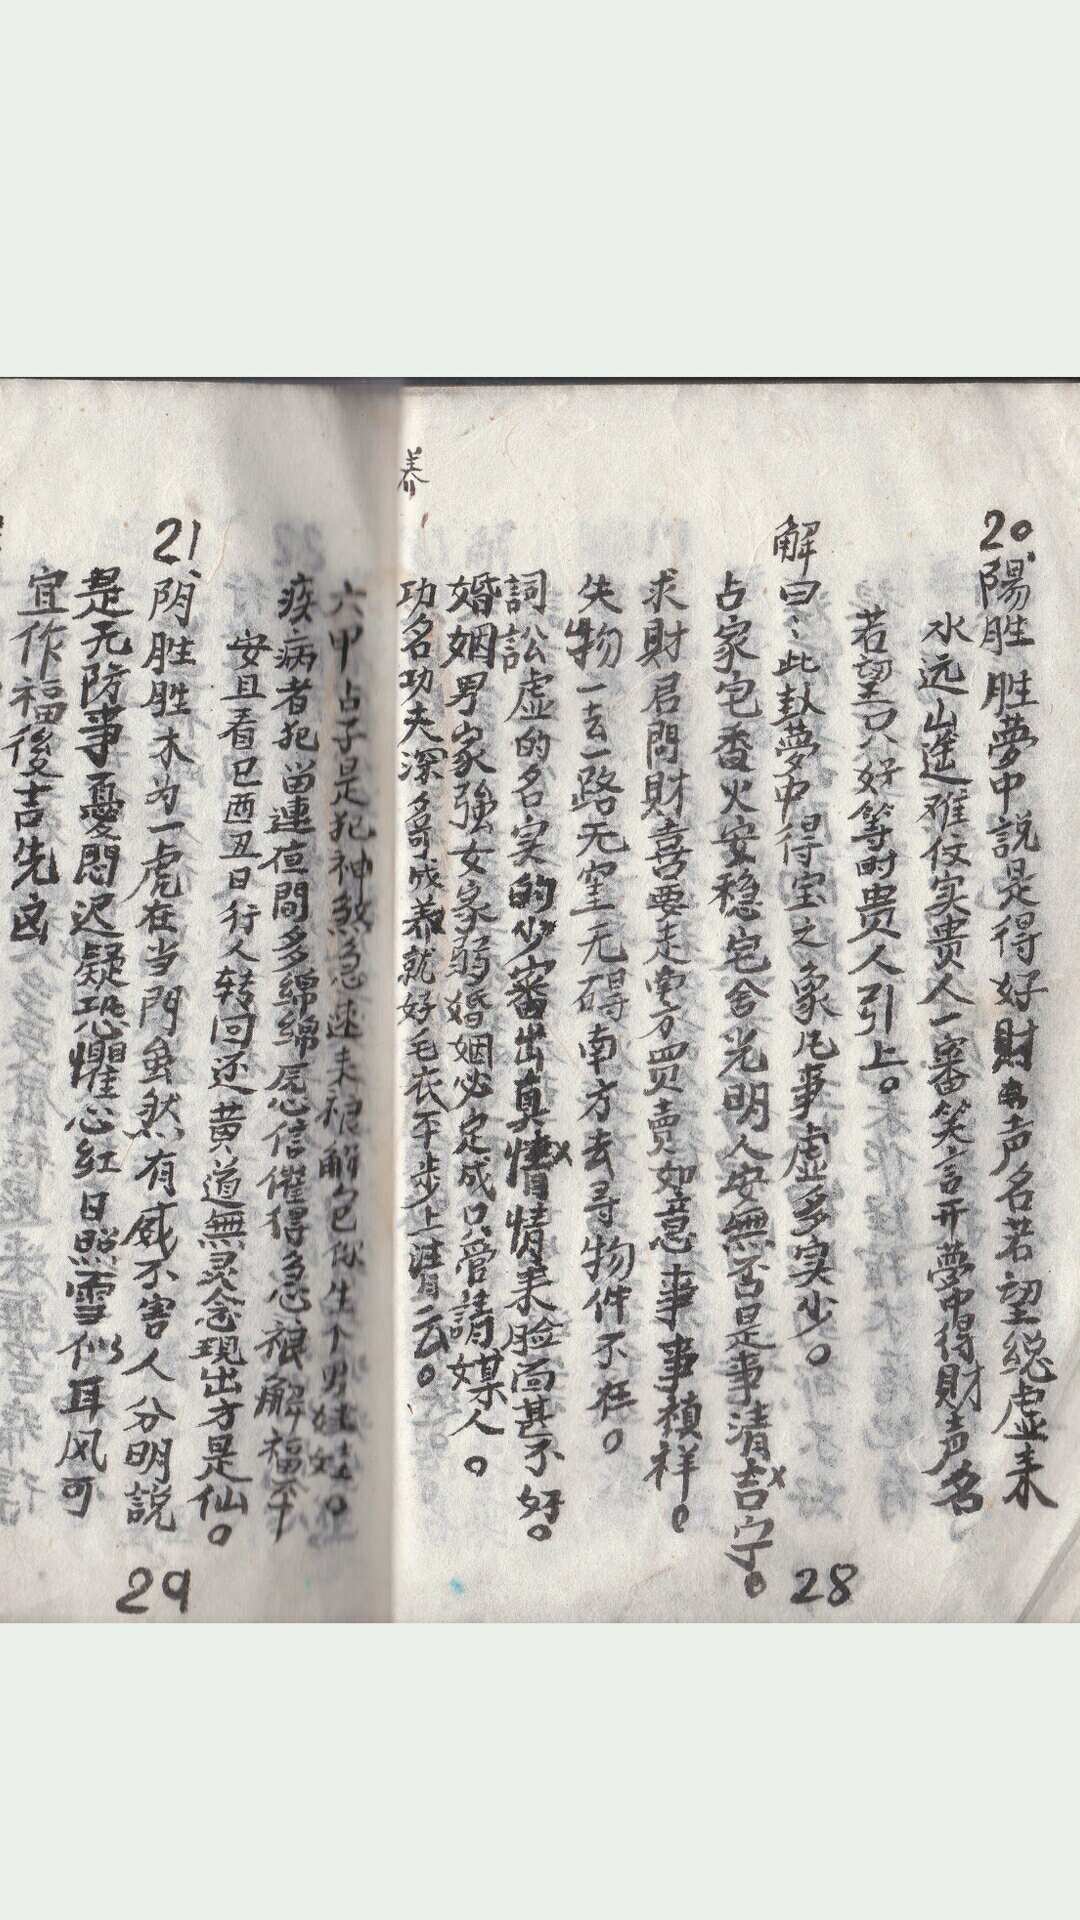 20、陽胜胜夢中説是得好財声名若望總虚耒
水远山遥难仗实贵人一審笑言开夢中得財声名
若望只好等时贵人引上。
解曰：此卦夢中得宝之象凡事虚多实少。
占家宅香火安稳宅舍光明人安無否是事清吉宁。
求財君問財喜要走南方买卖如意事事禎祥。
失物一去一路无室无碍南方去寻物件不在。
詞訟虚的名实的少審出真情耒脸面甚不好。
婚姻男家強女家弱婚姻必定成只管請媒人。
功名功夫深奇成养就好毛衣平步上清云。
养
六甲占子是犯神煞急速耒禳解包你生下男娃娃。
疾病者犯留連夜間多綿綿虎心信催得急禳解福平
安且看巳酉丑日行人转回还黄道無灵念現出方是仙。
21、阴胜胜木为一虎在当門虽然有威不害人分明説
是无防事憂悶迟疑恐懼心红日照雪似耳风可
宜作福後吉先凶
28
29